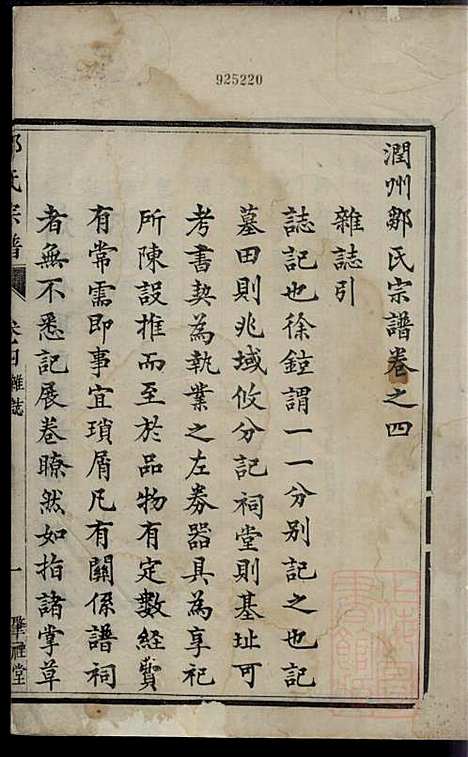 925220
潤州鄒氏宗譜卷之四
雜誌引
誌記也徐鍇謂一一分別記之也記
墓田則兆域攸分記祠堂則基址可
考書契為執業之左券器具為享祀
所陳設推而至於品物有定數經費
有常需即事宜瑣屑凡有關係譜祠
者無不悉記展卷瞭然如指諸掌草
鄒氏宗譜
卷四 雜誌
一
肇禋堂